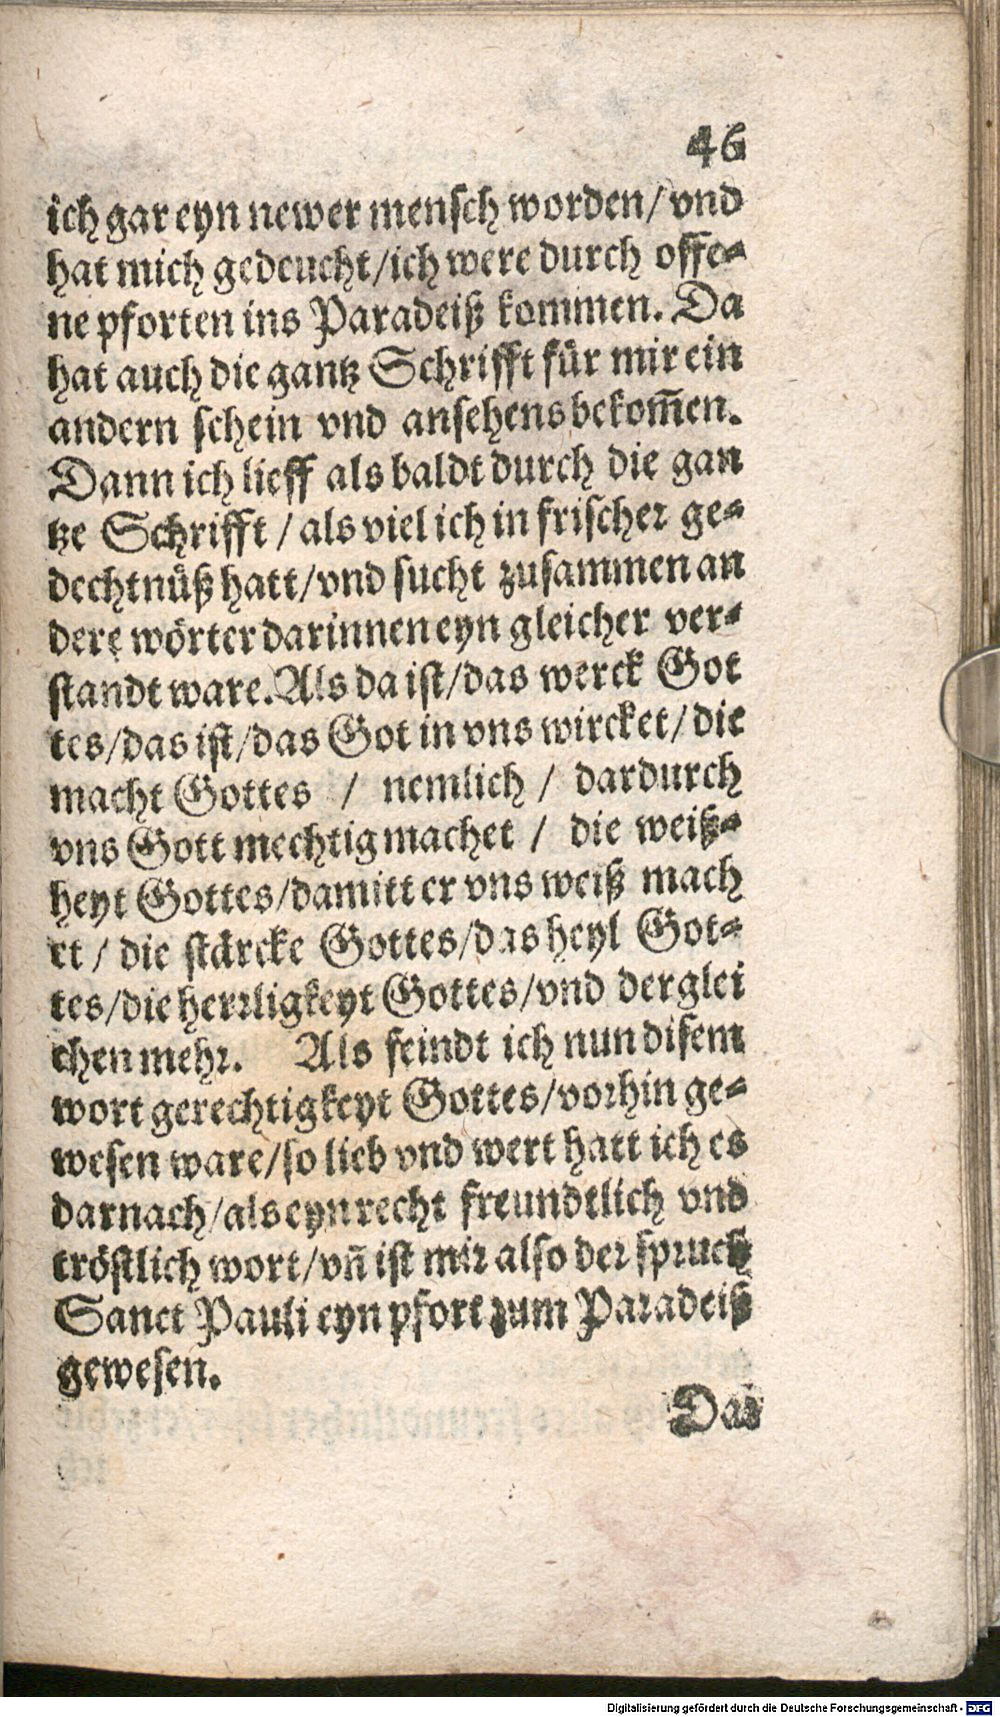 46
ich gar eyn newer mensch worden/ vnd
hat mich gedeucht/ich were durch offe-
ne pforten ins Paradeiß kommen. Da
hat auch die gantz Schrifft für mir ein
andern schein vnd ansehens bekom̃en.
Dann ich lieff als baldt durch die gan
tze Schrifft / als viel ich in frischer ge-
dechtnüß hatt/vnd sucht zusammen an
dere wörter darinnen eyn gleicher ver-
standt ware. Als da ist/das werck Got
tes/das ist/das Got in vns wircket/ die
macht Gottes / nemlich / dardurch
vns Gott mechtig machet / die weiß-
heyt Gottes/damitt er vns weiß mach
et / die stärcke Gottes/das heyl Got-
tes/die herrligkeyt Gottes/vnd derglei
chen mehr. Als feindt ich nun disem
wort gerechtigkeyt Gottes/vorhin ge-
wesen ware/so lieb vnd wert hatt ich es
darnach/als eyn recht freundtlich vnd
tröstlich wort/vñ ist mir also der spruch
Sanct Pauli eyn pfort zum Paradeiß
gewesen.
Das
Digitalisierung gefördert durch die Deutsche Forschungsgemeinschaft - DFG